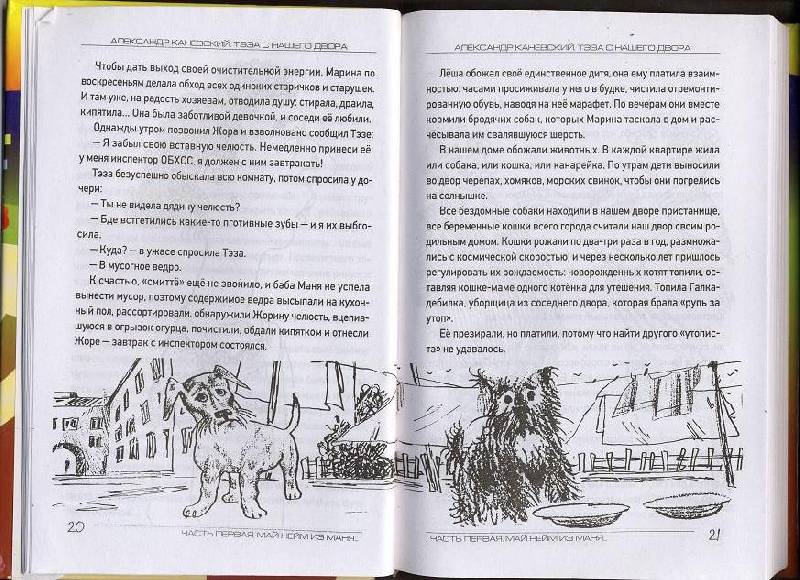 АЛЕКСАНДР КАНЕВСКИЙ. ТЭЗА С НАШЕГО ДВОРА
Чтобы дать выход своей очистительной энергии, Марина по
воскресеньям делала обход всех одиноких старичков и старушек.
И там уже, на радость хозяевам, отводила душу: стирала, драила,
кипятила... Она была заботливой девочкой, и соседи её любили.
Однажды утром позвонил Жора и взволновано сообщил Тэзе:
— Я забыл свою вставную челюсть. Немедленно принеси её
у меня инспектор ОБХСС, я должен с ним завтракать!
Тэза безуспешно обыскала всю комнату, потом спросила у до-
чери:
— Ты не видела дядину челюсть?
— Мне встретились какие-то противные зубы — и я их выбро-
сила.
— Куда? — в ужасе спросила Тэза.
— В мусорное ведро.
К счастью, «смиття» ещё не звонило, и баба Маня не успела
вынести мусор, поэтому содержимое ведра высыпали на кухон-
ный пол, рассортировали, обнаружили Жорину челюсть, вцепив-
шуюся в огрызок огурца, почистили, обдали кипятком и отнесли
Жоре — завтрак с инспектором состоялся.
20
ЧАСТЬ ПЕРВАЯ. МАЙ НЕЙМ ИЗ МАНЯ...
АЛЕКСАНДР КАНЕВСКИЙ. ТЭЗА С НАШЕГО ДВОРА
Лёша обожал своё единственное дитя, она ему платила взаим-
ностью: часами просиживала у него в будке, чистила отремонти-
рованную обувь, наводя на неё марафет. По вечерам они вместе
кормили бродячих собак, которых Марина таскала с дом и расчё-
сывала им свалявшуюся шерсть.
В нашем доме обожали животных. В каждой квартире жила
или собака, или кошка, или канарейка. По утрам дети выносили
во двор черепах, хомяков, морских свинок, чтобы они погрелись
на солнышке.
Все бездомные собаки находили в нашем дворе пристанище,
все беременные кошки всего города считали наш двор своим ро-
дильным домом. Кошки рожали по два-три раза в год, размножа-
лись с космической скоростью, и через несколько лет пришлось
регулировать их рождаемость: новорожденных котят топили, ос-
тавляя кошке-маме одного котёнка для утешения. Топила Галка-
дебилка, уборщица из соседнего двора, которая брала «рупь за
утоп».
Её презирали, но платили, потому что найти другого «утопис-
та» не удавалось.
ЧАСТЬ ПЕРВАЯ. МАЙ НЕЙМ ИЗ МАНЯ...
21